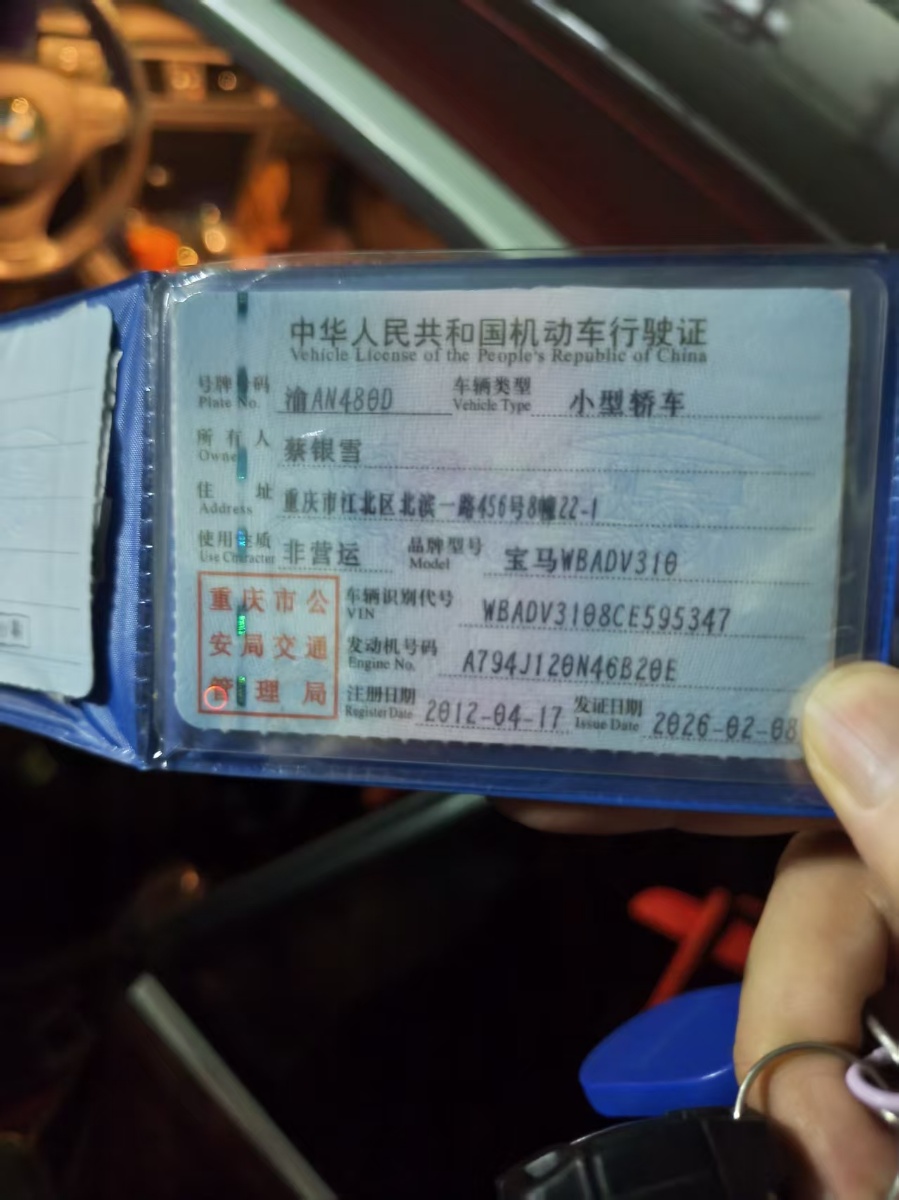 中华人民共和国机动车行驶证
Vehicle License of the People's Republic of China
号牌号码 渝AN480D 车辆类型 小型轿车
Plate No. Vehicle Type
所有人 蔡银雪
Owner
住址 重庆市江北区北滨一路456号8幢22-1
Address
使用性质 非营运 品牌型号 宝马WBADV310
Use Character Model
重庆市公 车辆识别代号 WBADV3108CE595347
VIN
安局交通 发动机号码 A794J120N46B20E
Engine No.
管理局 注册日期 2012-04-17 发证日期 2026-02-08
Register Date Issue Date